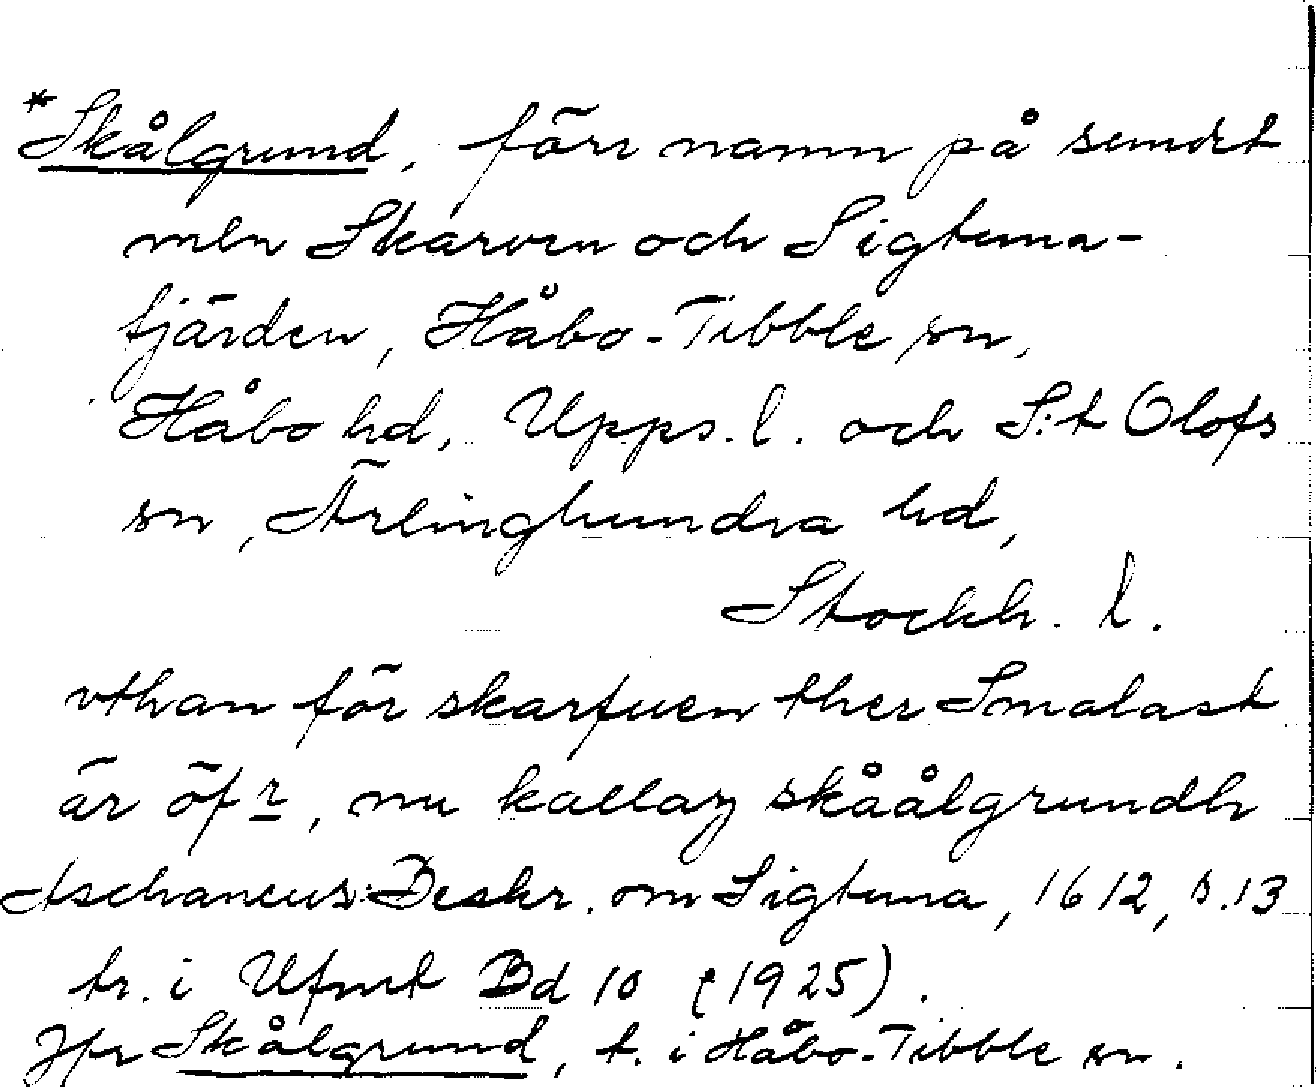 *Skålgrund, förr namn på sundet
mln Skarven och Sigtuna-
fjärden, Håbo-Tibble sn,
Håbo hd, Upps. l. och S:t Olofs
sn, Ärlinghundra hd,
Stockh. l.
vthan för skarfuen ther Smalast
är öfr, nu kallaz skåålgrundh
Aschaneus: Beskr. om Sigtuna, 1612, s. 13
tr. i Ufmt Bd 10 (1925).
Jfr Skålgrund, t. i Håbo-Tibble sn.